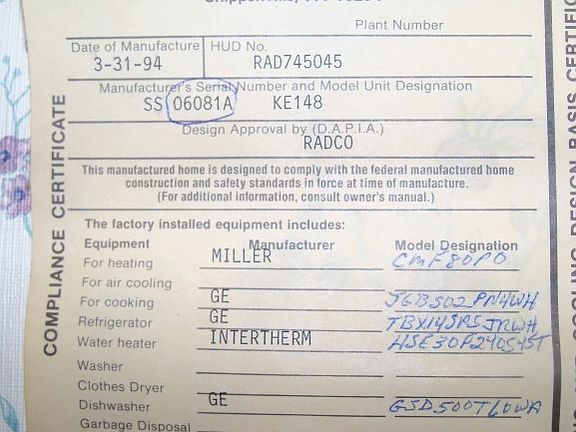 Plant Number
Date of Manufacture HUD No.
3-31-94 RAD745045
Manufacturer's Serial Number and Model Unit Designation
SS 06081A KE148
Design Approval by (D.A.P.I.A.)
RADCO
This manufactured home is designed to comply with the federal manufactured home
construction and safety standards in force at time of manufacture.
(For additional information, consult owner's manual.)
COMPLIANCE CERTIFICATE
The factory installed equipment includes:
Equipment Manufacturer Model Designation
For heating MILLER CMF80PO
For air cooling
For cooking GE
Refrigerator GE
Water heater INTERTHERM
Washer
Clothes Dryer
Dishwasher GE
Garbage Disposal